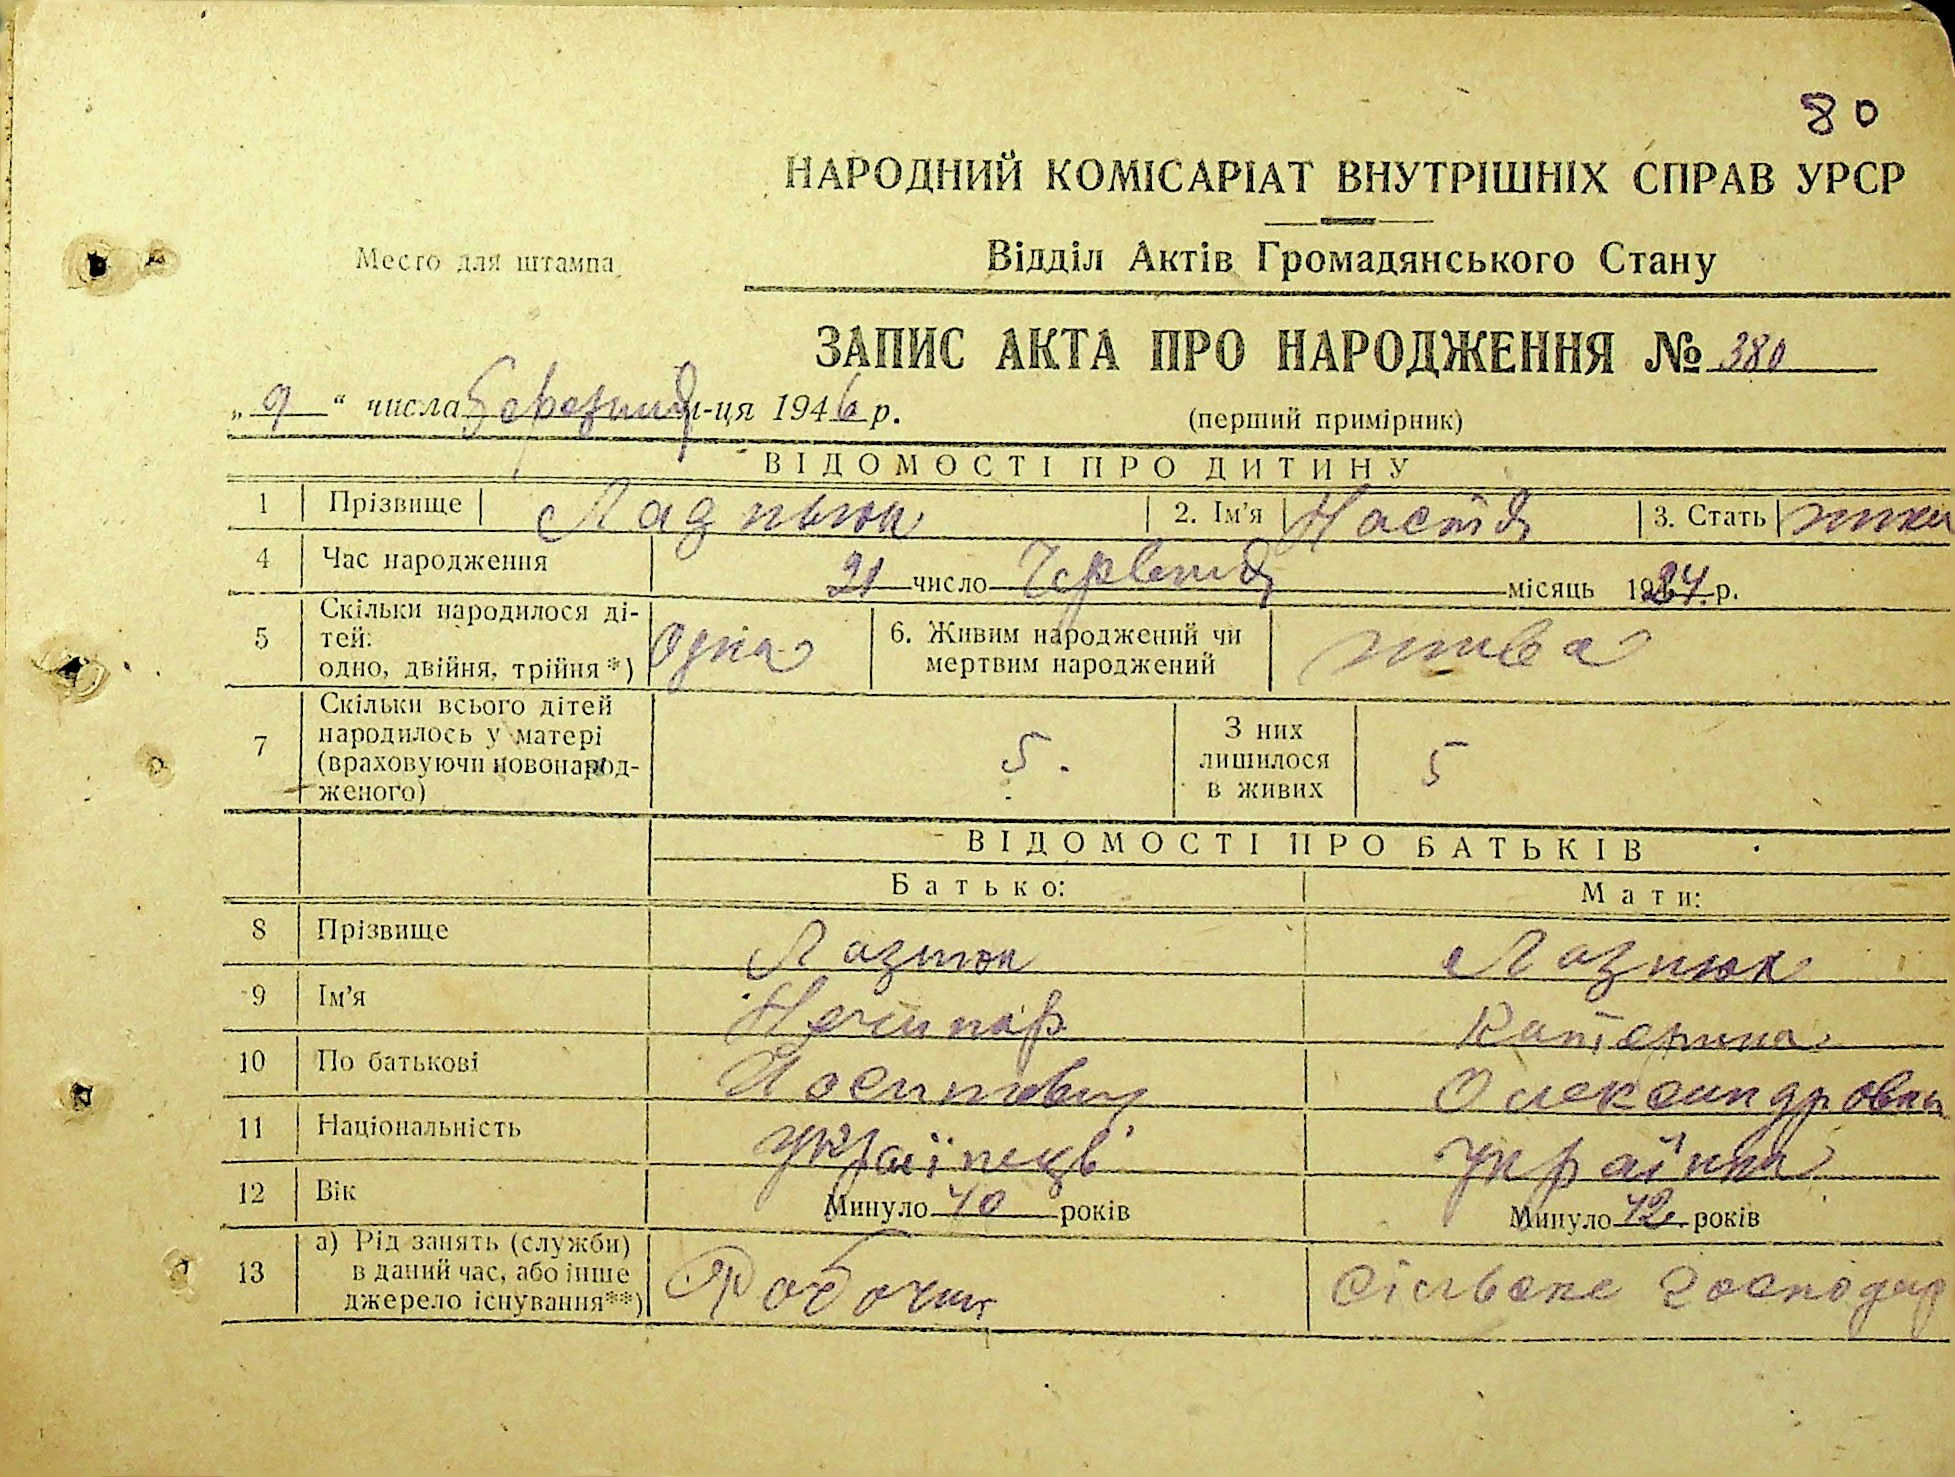 80
НАРОДНИЙ КОМІСАРІАТ ВНУТРІШНІХ СПРАВ УРСР
Место для штампа
Відділ Актів Громадянського Стану
ЗАПИС АКТА ПРО НАРОДЖЕННЯ № 380
„ 9 “ числа березня м-ця 1946 р.
(перший примірник)
ВІДОМОСТІ ПРО ДИТИНУ
1 Прізвище 2. Ім'я Настя 3. Стать
4 Час народження 21 число Червня місяць 1924 р.
5 Скільки народилося ді-
тей:
одно, двійня, трійня *) Одна 6. Живим народжений чи
мертвим народжений жива
7 Скільки всього дітей
народилось у матері
(враховуючи новонарод-
женого) 5. З них
лишилося
в живих 5
ВІДОМОСТІ ПРО БАТЬКІВ
Батько: Мати:
8 Прізвище Лазнюк Лазнюк
9 Ім'я Нечипор Катерина
10 По батькові Йосипович Олександровна
11 Національність українець українка
12 Вік Минуло 40 років Минуло 42 років
13 а) Рід занять (служби)
в даний час, або інше
джерело існування**) Робочий Сільське господар